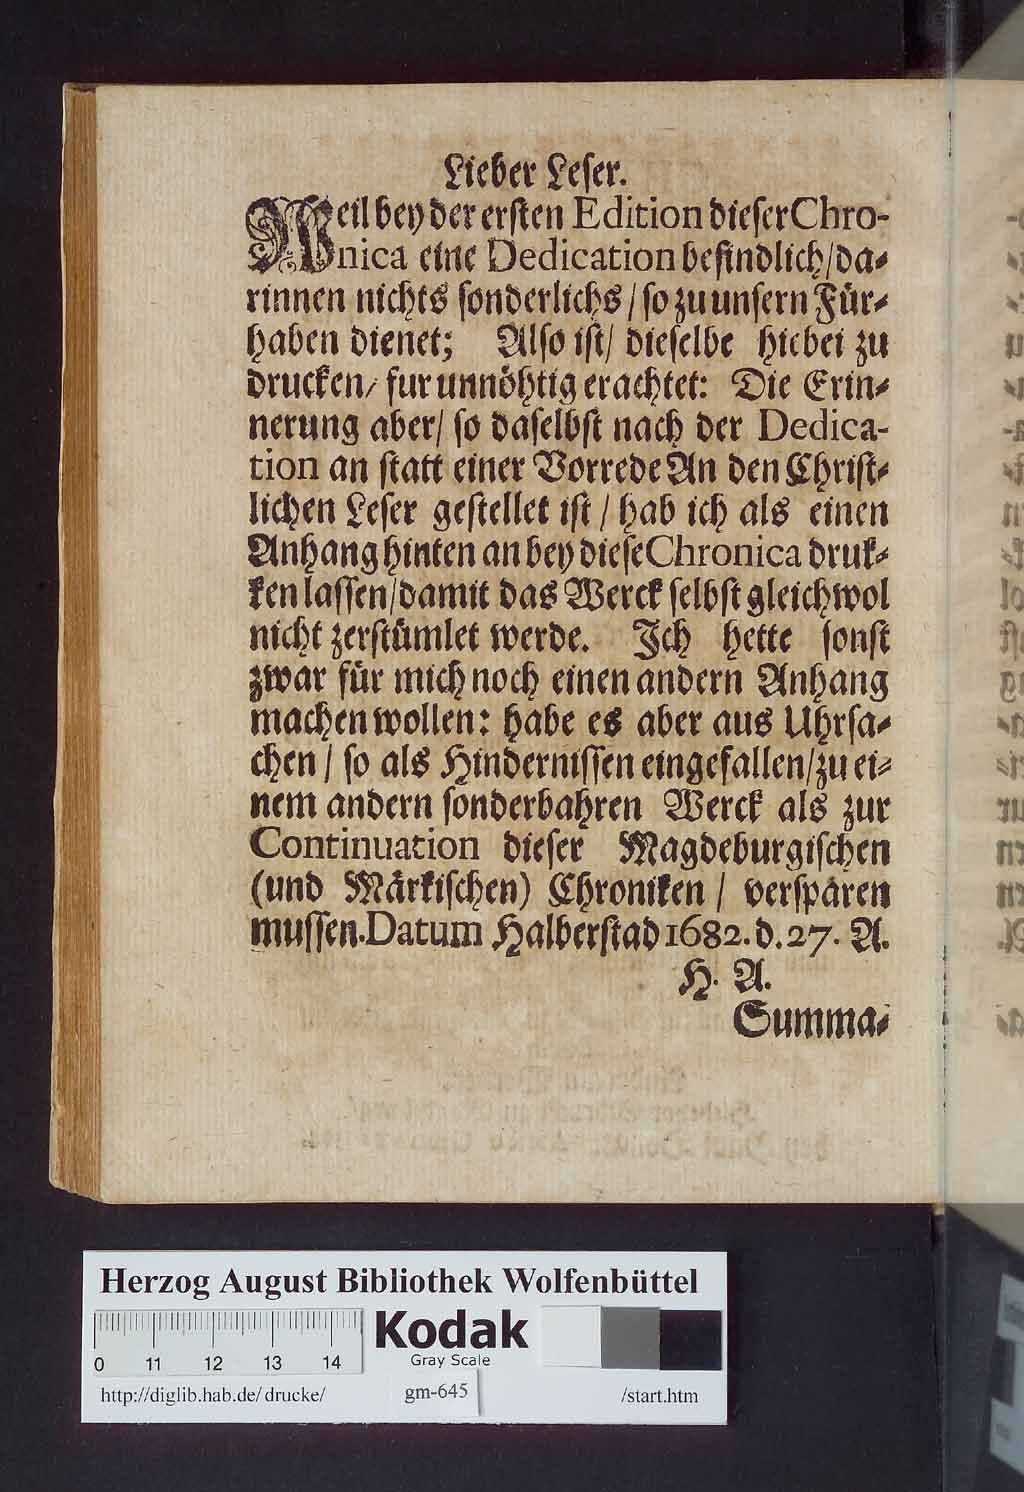 Lieber Leser.
Weil bey der ersten Edition dieser Chro-
nica eine Dedication befindlich/da-
rinnen nichts sonderlichs/so zu unsern Für-
haben dienet; Also ist/ dieselbe hiebei zu
drucken/ fur unnöhtig erachtet: Die Erin-
nerung aber/ so daselbst nach der Dedica-
tion an statt einer Vorrede An den Christ-
lichen Leser gestellet ist / hab ich als einen
Anhang hinten an bey diese Chronica druk-
ken lassen/damit das Werck selbst gleichwol
nicht zerstümlet werde. Jch hette sonst
zwar für mich noch einen andern Anhang
machen wollen: habe es aber aus Uhrsa-
chen / so als Hindernissen eingefallen/zu ei-
nem andern sonderbahren Werck als zur
Continuation dieser Magdeburgischen
(und Märkischen) Chroniken / verspären
mussen.Datum Halberstad 1682. d. 27. A.
H. A.
Summa-
Herzog August Bibliothek Wolfenbüttel
Kodak
Gray Scale
0 11 12 13 14
http://diglib.hab.de/drucke/ gm-645 /start.htm